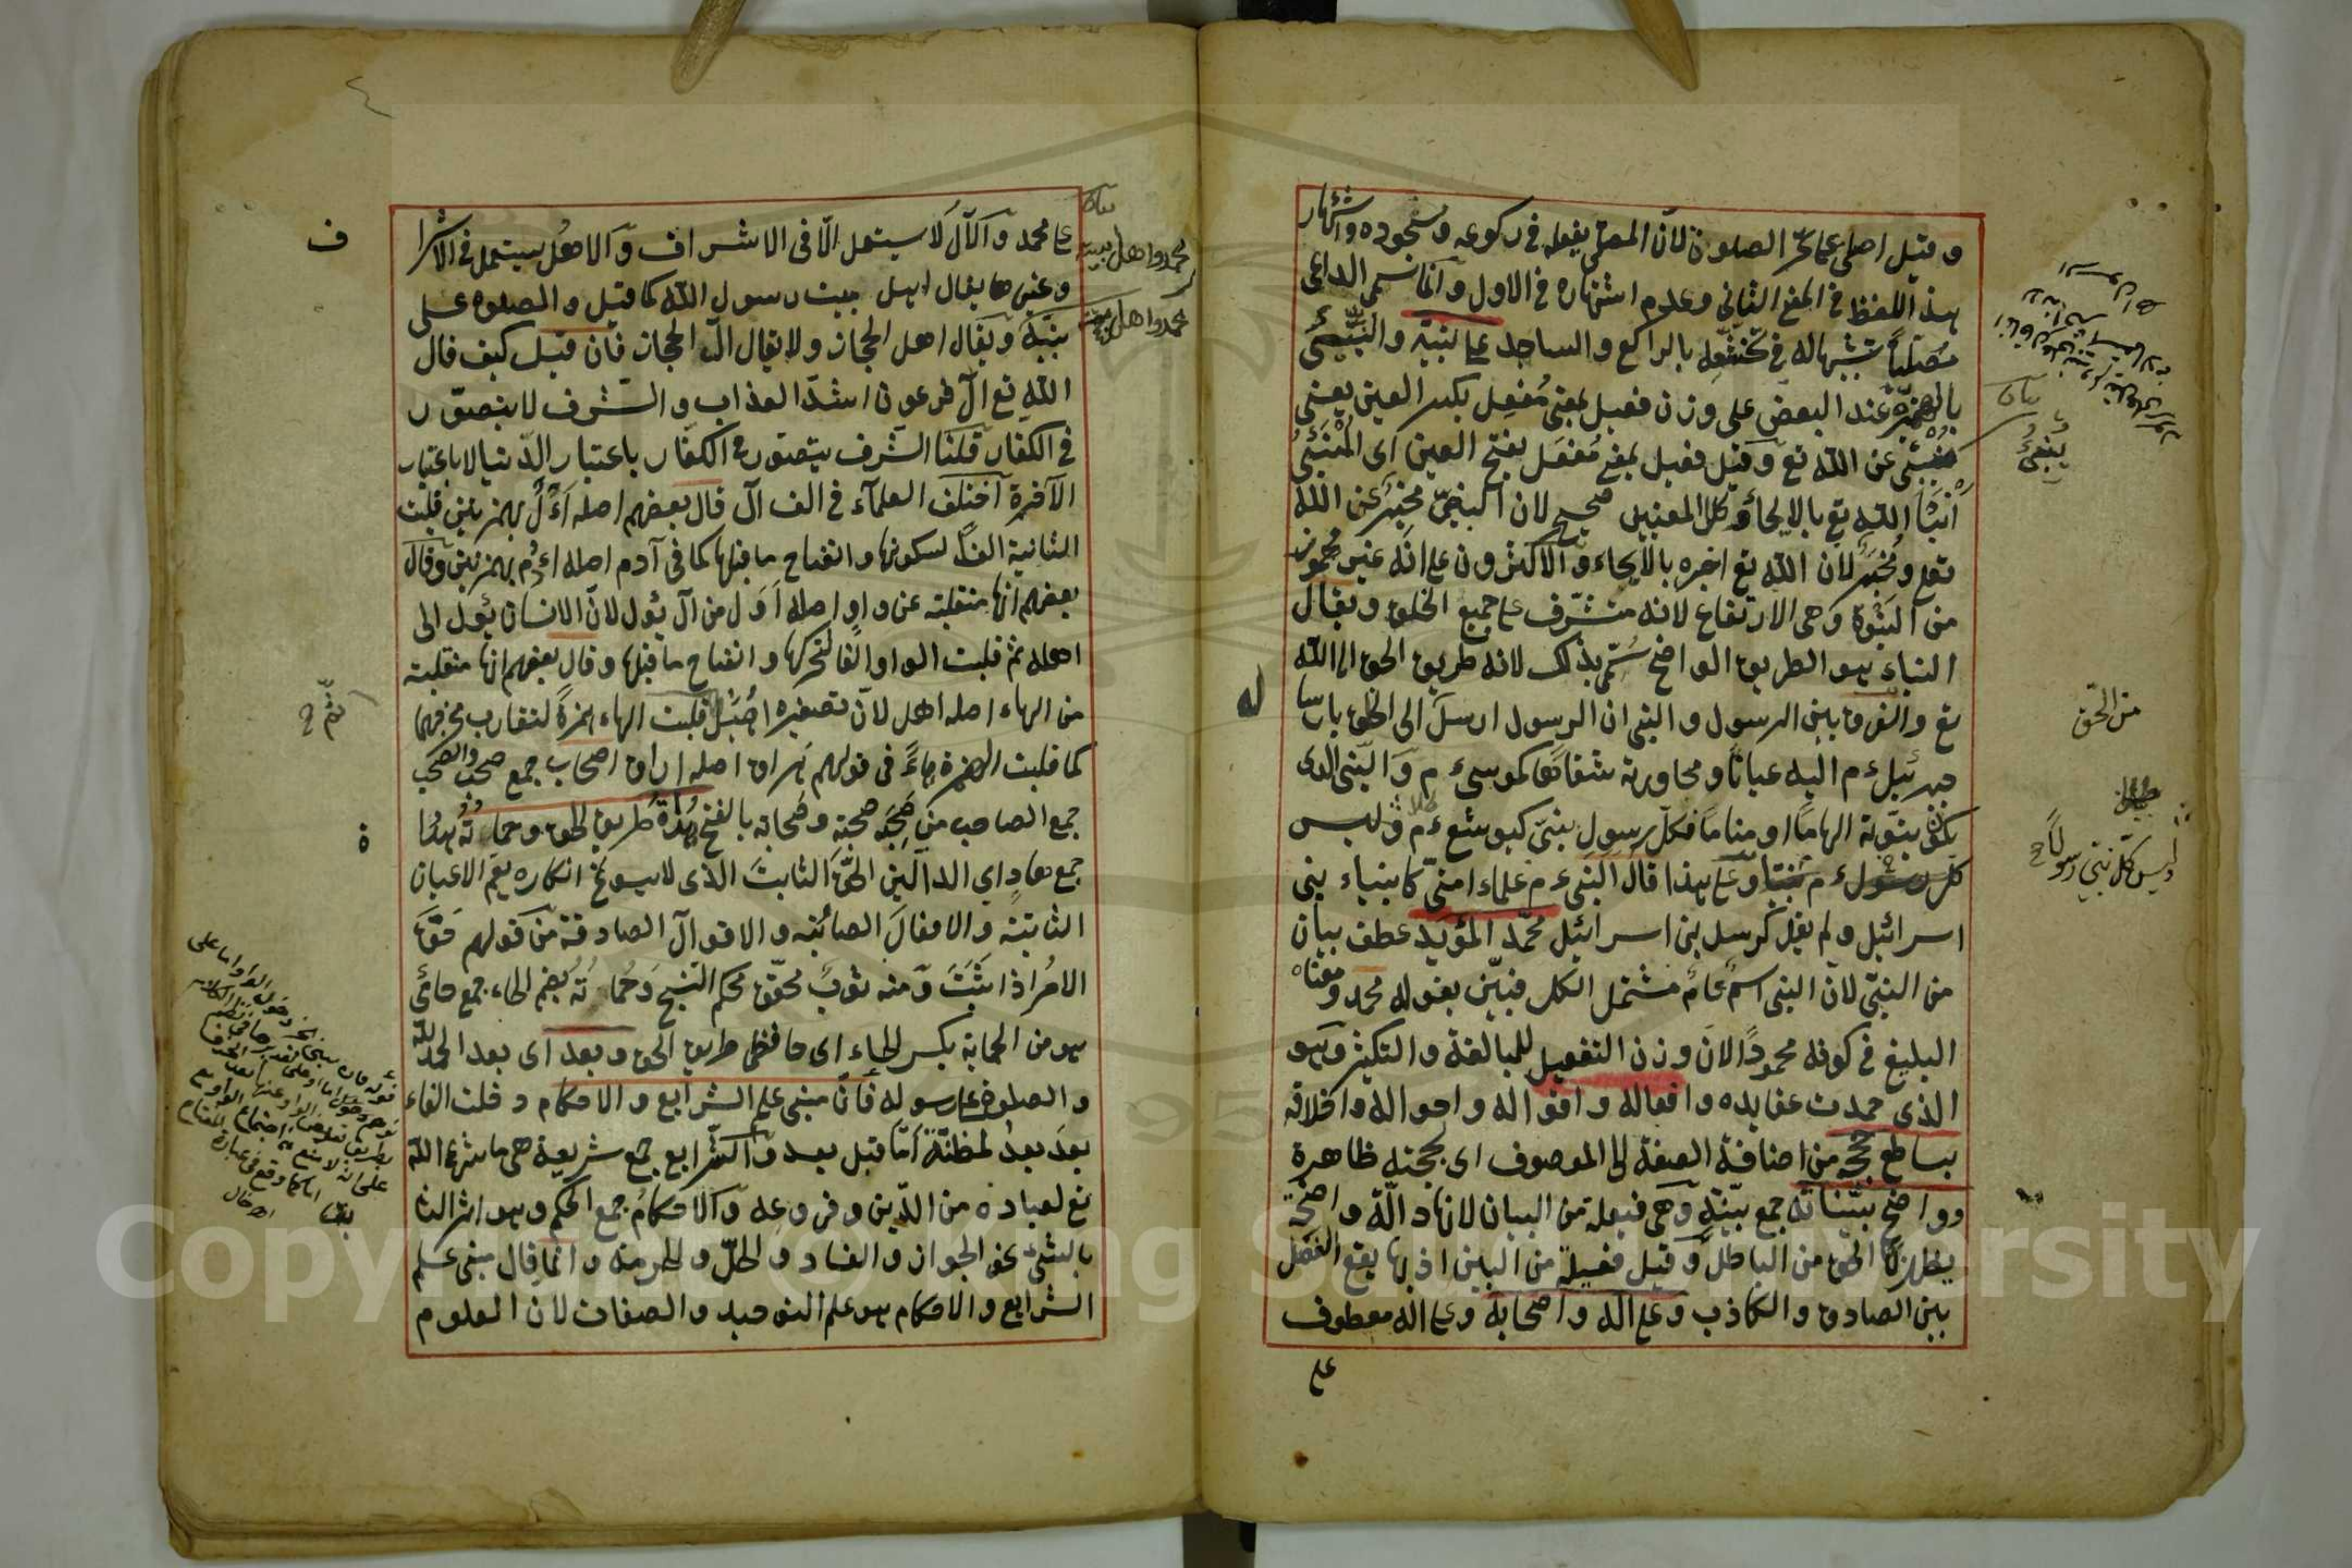 وقيل اصلى بمعنى حرك الصلوين لان المصلى يفعله في ركوعه وسجوده واشتهار
هذا اللفظ في المعنى الثاني وعدم اشتهاره في الاول وانما سمى الداعى
مصليا تشبيها له في تخشعه بالراكع والساجد على نبيه والنبيئ
بالهمزة عند البعض على وزن فعيل بمعنى مفعل بكسر العين يعنى
عن الله تع وقيل فعيل بمعنى مفعل بفتح العين اى المنبئ
انبأ الله تع بالايحاء وكلا المعنيين صحيح لان النبى مخبر عن الله
تعو ومخبر لان الله تع اخبره بالايحاء والاكثرون على انه غير مهموز
من النبوة وهى الارتفاع لانه مشرف على جميع الخلق ويقال
النباء هو الطريق الواضح سمى بذلك لانه طريق الحق الى الله
تع والفرق بين الرسول والنبى ان الرسول ارسل الى الخلق بارسال
جبرئيل ءم اليه عيانا ومحاورته شفاها كموسى ءم والنبى الذى
يكون نبوته الهاما او مناما فكل رسول نبى كيوشع ءم وليس
كل رسول ءم نبيا وعلى هذا قال النبى ءم علماء امتى كانبياء بنى
اسرائيل ولم يقل كرسل بنى اسرائيل محمد المؤيد عطف بيان
من النبى لان النبى اسم عام مشتمل الكل فبين بقوله محمد ومعناه
البليغ في كونه محمودا لان وزن التفعيل للمبالغة والتكثير وهو
الذى حمدت عقايده وافعاله واقواله واحواله واخلاقه
بساطع حججه من اضافة الصفة الى الموصوف اى بحججه ظاهرة
وواضح بيناته جمع بينة وهى فيعلة من البيان لانها دالة واضحة
يظهر بها الحق من الباطل وقيل فعيلة من البين اذ بها يقع الفصل
بين الصادق والكاذب وعلى اله واصحابه وعلى اله معطوف
على
من الحق
ليس كل نبى رسولا صح
على محمد والآل لا يستعمل الا فى الاشراف والاهل يستعمل في الاشراف
وغيرها يقال اهل بيت رسول الله كما قيل والصلوه على
نبيه ويقال اهل الحجاز ولا يقال آل الحجاز فان قيل كيف قال
الله تع آل فرعون اشد العذاب والشرف لا يتصور
في الكفار قلنا الشرف يتصور في الكفار باعتبار الدنيا لا باعتبار
الآخرة اختلف العلماء في الف آل قال بعضهم اصله اءل بهمزتين قلبت
الثانية الفا لسكونها وانفتاح ما قبلها كما فى آدم اصله اءدم بهمزتين وقال
بعضهم انها منقلبة عن واو اصله اول من آل يئول لان الانسان يئول الى
اهله ثم قلبت الواو الفا لتحركها وانفتاح ما قبلها وقال بعضهم انها منقلبة
من الهاء اصله اهل لان تصغيره اهيل قلبت الهاء همزة لتقارب مخرجهما
كما قلبت الهمزة هاء فى قولهم هراق اصله اراق اصحاب جمع صحب والصحب
جمع الصاحب من صحبه صحبة وصحابة بالفتح هداة طريق الحق وحماته هداة
جمع هاد اي الدالين الحق الثابت الذى لا يسوغ انكاره يعم الاعيان
الثابتة والافعال الصائبة والاقوال الصادقة من قولهم حق
الامر اذا ثبت ومنه ثوب محقق محكم النسج وحماته بضم الحاء جمع حامى
هو من الحماية بكسر الحاء اى حافظى طريق الحق وبعد اى بعد الحمد لله
والصلوة على رسوله فان مبنى علم الشرايع والاحكام دخلت الفاء
بعد بعد لمظنة اما قبل بعد والشرايع جمع شريعة هى ما شرع الله
تع لعباده من الدين وفروعه والاحكام جمع الحكم وهو اثر الثا
بالشئ نحو الجواز والفساد والحل والحرمة وانما قال مبنى علم
الشرايع والاحكام هو علم التوحيد والصفات لان العلوم
محمد واهل بيته
محمد واهل بيته
Copyright © King Saud University